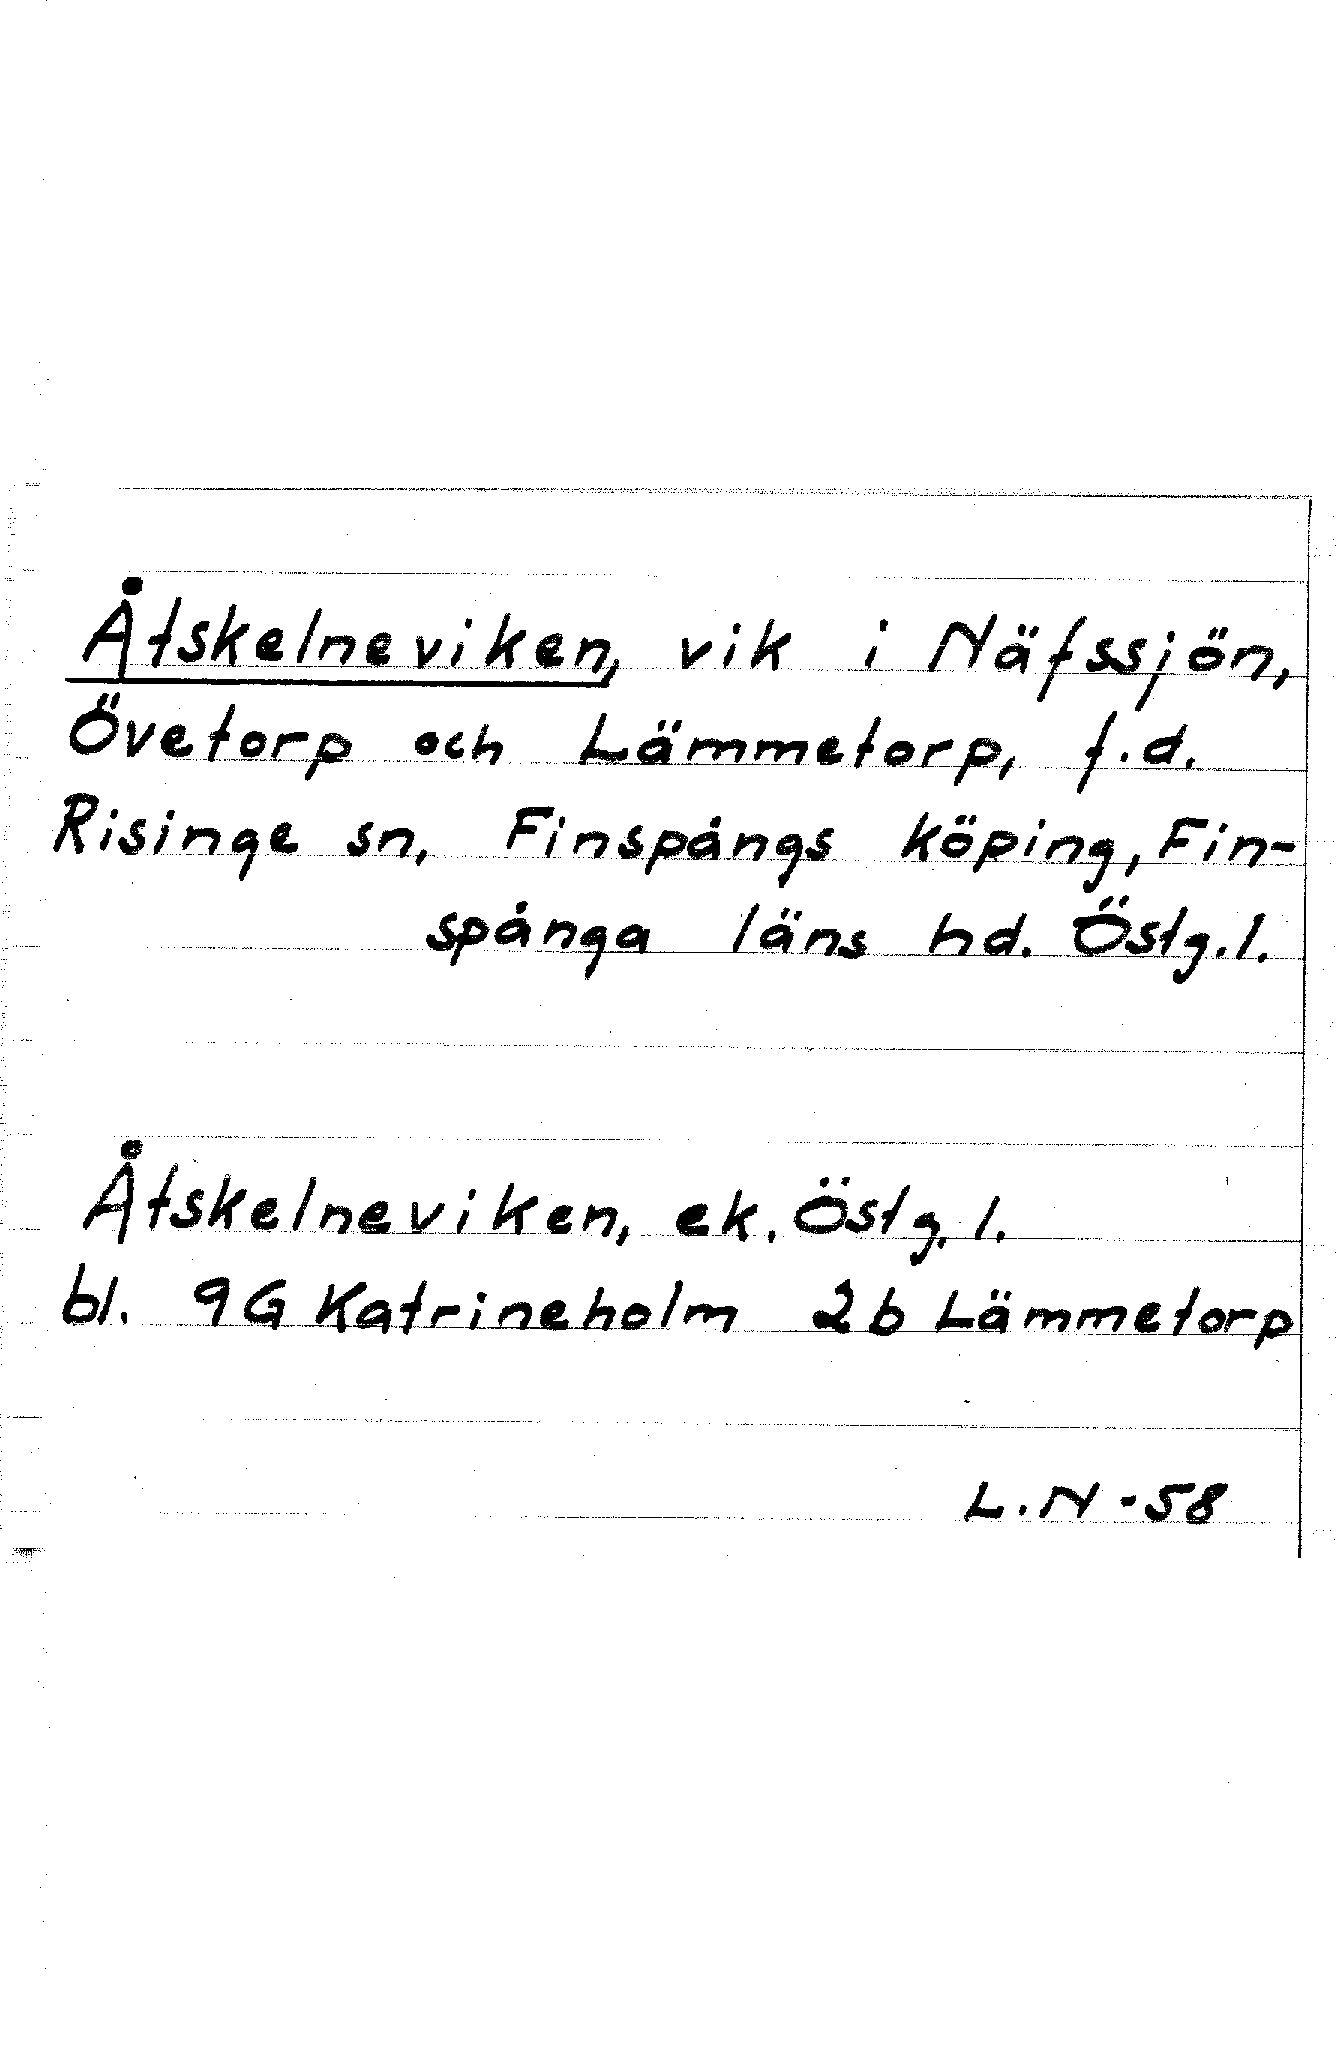 Åtskelneviken, vik i Näfssjön,
Övetorp och Lämmetorp, f.d.
Risinge sn, Finspångs köping, Fin-
spånga läns hd. Östg.l.
Åtskelneviken, ek. Östg. l.
bl. 9G Katrineholm 2b Lämmetorp
L.N -58